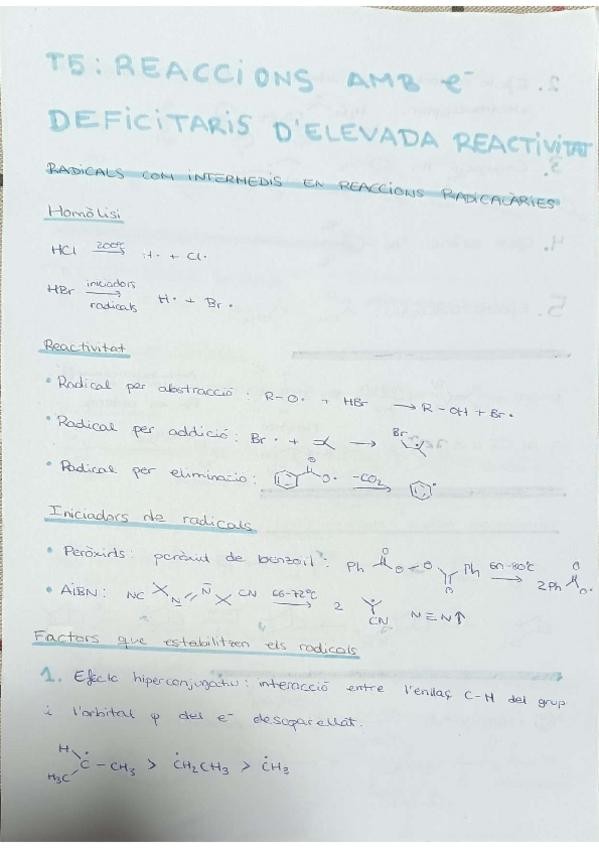 T5: REACCIONS AMB e⁻
DEFICITARIS D'ELEVADA REACTIVITAT
RADICALS COM INTERMEDIS EN REACCIONS RADICALÀRIES
Homòlisi
HCl 200ºC → H· + Cl·
HBr iniciadors radicals → H· + Br·
Reactivitat
• Radical per abstracció : R-O· + HBr → R-OH + Br·
• Radical per addició : Br· + → Br
• Radical per eliminació : O O· -CO₂ →
Iniciadors de radicals
• Peròxids: peròxid de benzoil : Ph O O-O Ph O 60-80ºC → 2 Ph O O·
• AiBN: NC N=N CN 66-72ºC → 2 CN N≡N↑
Factors que estabilitzen els radicals
1. Efecte hiperconjugatiu: interacció entre l'enllaç C-H del grup
i l'orbital p del e⁻ desaparellat.
H H₃C Ċ-CH₃ > ĊH₂CH₃ > ĊH₃